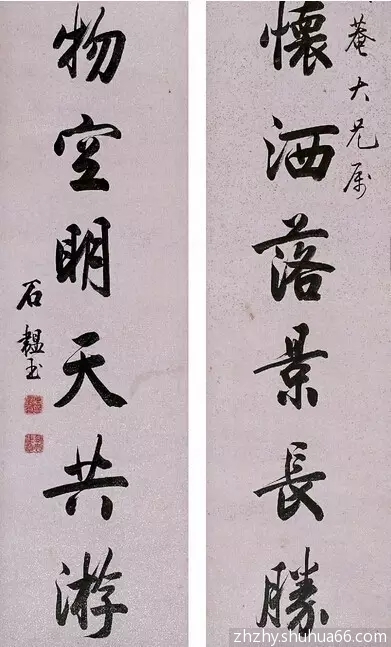 菴大兄属
懷洒落景長勝
物空明天共游
石韞玉
zhzhy.shuhua66.com